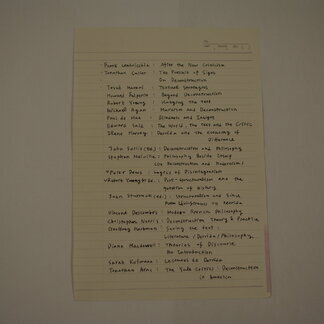 Frank Lentricchia : After the New Criticism
Jonathan Culler : The Pursuit of Signs
On Deconstruction
Josué Harari : Textual Strategies
Howard Felperin : Beyond Deconstruction
Robert Young : Untying the Text
Michael Ryan : Marxism and Deconstruction
Paul de Man : Blindness and Insight
Edward Said : The World, the Text and the Critic
Irene Harvey : Derrida and the Economy of
Différance
John Sallis (ed.) : Deconstruction and Philosophy
Stephen Melville : Philosophy Beside Itself
(On Deconstruction and Modernism)
Peter Dews : Logics of Disintegration
Robert Young (ed.) : Post-structuralism and the
question of history
John Sturrock (ed.) : Structuralism and Since
From Lévi-Strauss to Derrida
Vincent Descombes : Modern French Philosophy
Christopher Norris : Deconstruction Theory & Practice
Geoffrey Hartman : Saving the Text :
Literature / Derrida / Philosophy
Diane Macdonell : Theories of Discourse
An Introduction
Sarah Kofman : Lectures de Derrida
Jonathan Arac : The Yale Critics : Deconstruction
in America